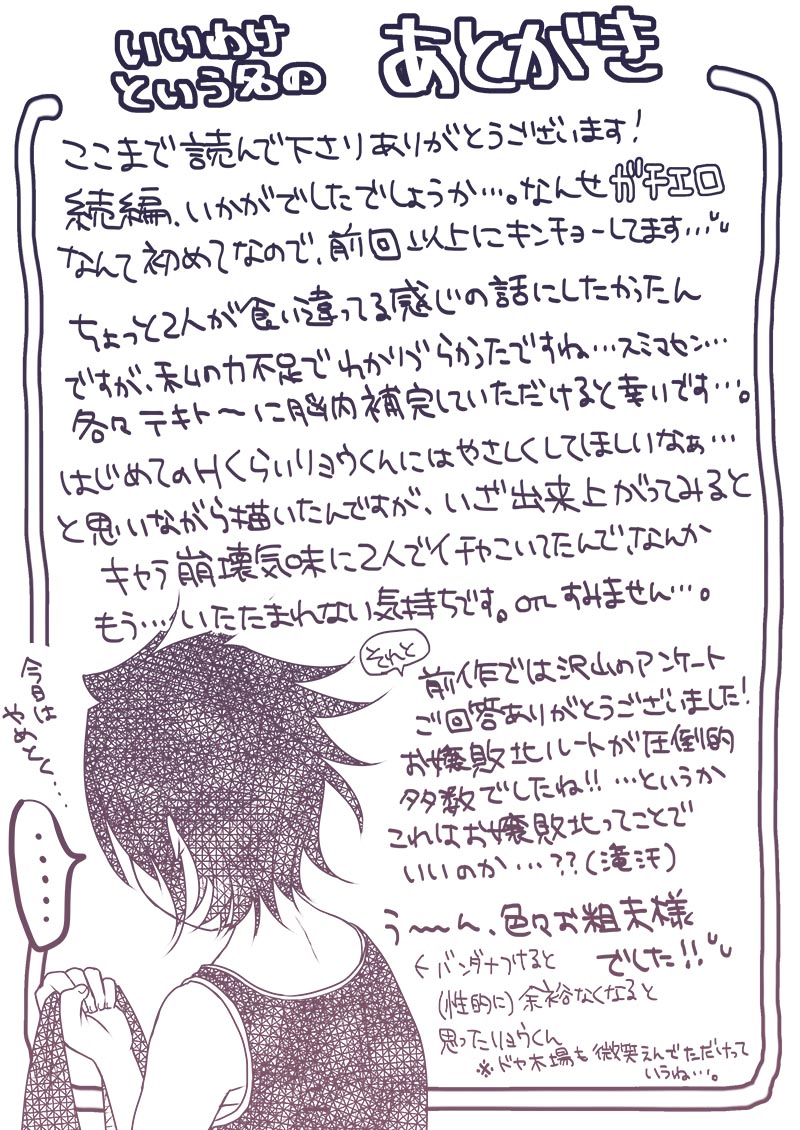 いいわけ
という名の
あとがき
ここまで読んで下さりありがとうございます！
続編、いかがでしたでしょうか…。なんせガチエロ
なんて初めてなので、前回以上にキンチョーしてます…
ちょっと2人が食い違ってる感じの話にしたかったん
ですが、私の力不足でわかりづらかったですね…スミマセン…
各々テキトーに脳内補完していただけると幸いです…。
はじめてのHくらいリョウくんにはやさしくしてほしいなぁ…
と思いながら描いたんですが、いざ出来上がってみると
キャラ崩壊気味に2人でイチャこいてたんで、なんか
もう…いたたまれない気持ちです。orz すみません…。
それと
前作では沢山のアンケート
ご回答ありがとうございました！
お嬢敗北ルートが圧倒的
多数でしたね!! …というか
これはお嬢敗北ってことで
いいのか…??(滝汗)
う～～ん、色々お粗末様
でした!!
←バンダナつけると
(性的に)余裕なくなると
思ったリョウくん
※ドヤ木場も微笑えんでただけって
いうね…。
今日は
やめとく…
・・・・・